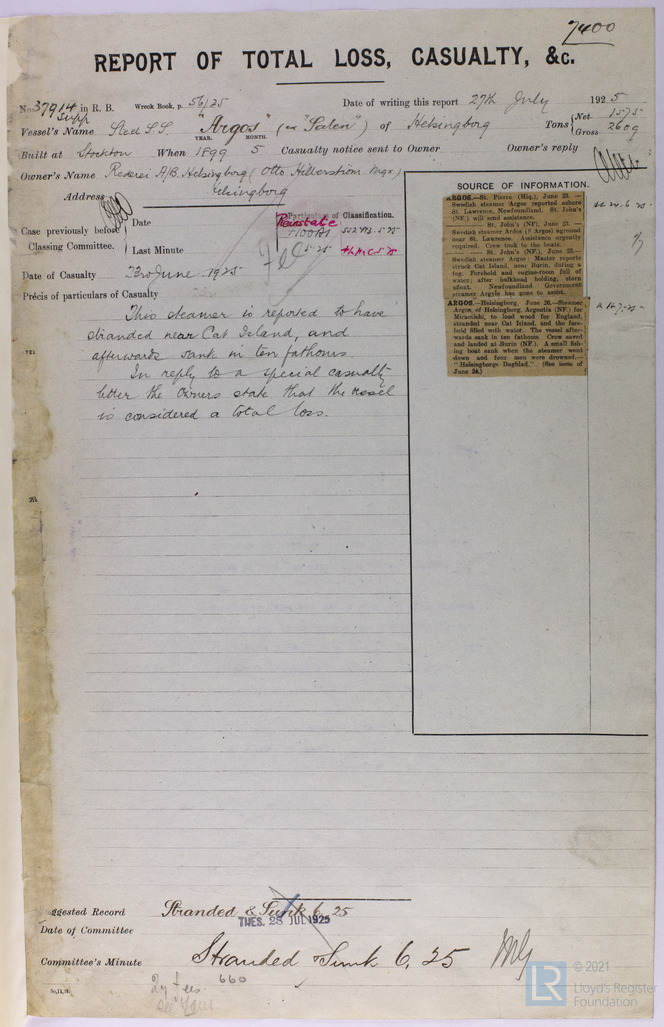 7400
REPORT OF TOTAL LOSS, CASUALTY, &c.
No. 37914 in R. B. Wreck Book, p. 56/25 Date of writing this report 27th July 1925
Supp
Vessel's Name Steel S.S. "Argos" (ex "Salen") of Helsingborg Tons { Net 1575 Gross 2609
Built at Stockton When YEAR. 1899 MONTH. 5 Casualty notice sent to Owner Owner's reply
Owner's Name Rederi A/B. Helsingborg (Otto Hillerström Mgr.)
Address Helsingborg
Case previously before Classing Committee. { Date
Last Minute
Particulars of Classification.
Reinstate
+100A1
5.25
Date of Casualty 23rd June 1925
Précis of particulars of Casualty
This steamer is reported to have
stranded near Cat Island, and
afterwards sank in ten fathoms.
In reply to a special casualty
letter the Owners state that the vessel
is considered a total loss.
SOURCE OF INFORMATION.
ARGOS.—St. Pierre (Miq.), June 23.—
Swedish steamer Argos reported ashore
St. Lawrence, Newfoundland. St. John's
(NF.) will send assistance.
—— St. John's (NF), June 23.—
Swedish steamer Ardos (? Argos) aground
near St. Lawrence. Assistance urgently
required. Crew took to the boats.
—— St. John's (NF.), June 23.—
Swedish steamer Argos Master reports
struck Cat Island, near Burin, during a
fog. Forehold and engine-room full of
water; after bulkhead holding, stern
afloat. Newfoundland Government
steamer Argyle has gone to assist.
ARGOS.—Helsingborg, June 26.—Steamer
Argos, of Helsingborg, Argentia (NF.) for
Miramichi, to load wood for England,
stranded near Cat Island, and the fore-
hold filled with water. The vessel after-
wards sank in ten fathoms. Crew saved
and landed at Burin (NF.). A small fish-
ing boat sank when the steamer went
down and four men were drowned.—
"Helsingborgs Dagblad." (See issue of
June 24.)
Suggested Record Stranded & Sunk 6.25
Date of Committee TUES. 28 JUL 1925
Committee's Minute Stranded & Sunk 6.25
660
LR
© 2021
Lloyd's Register
Foundation